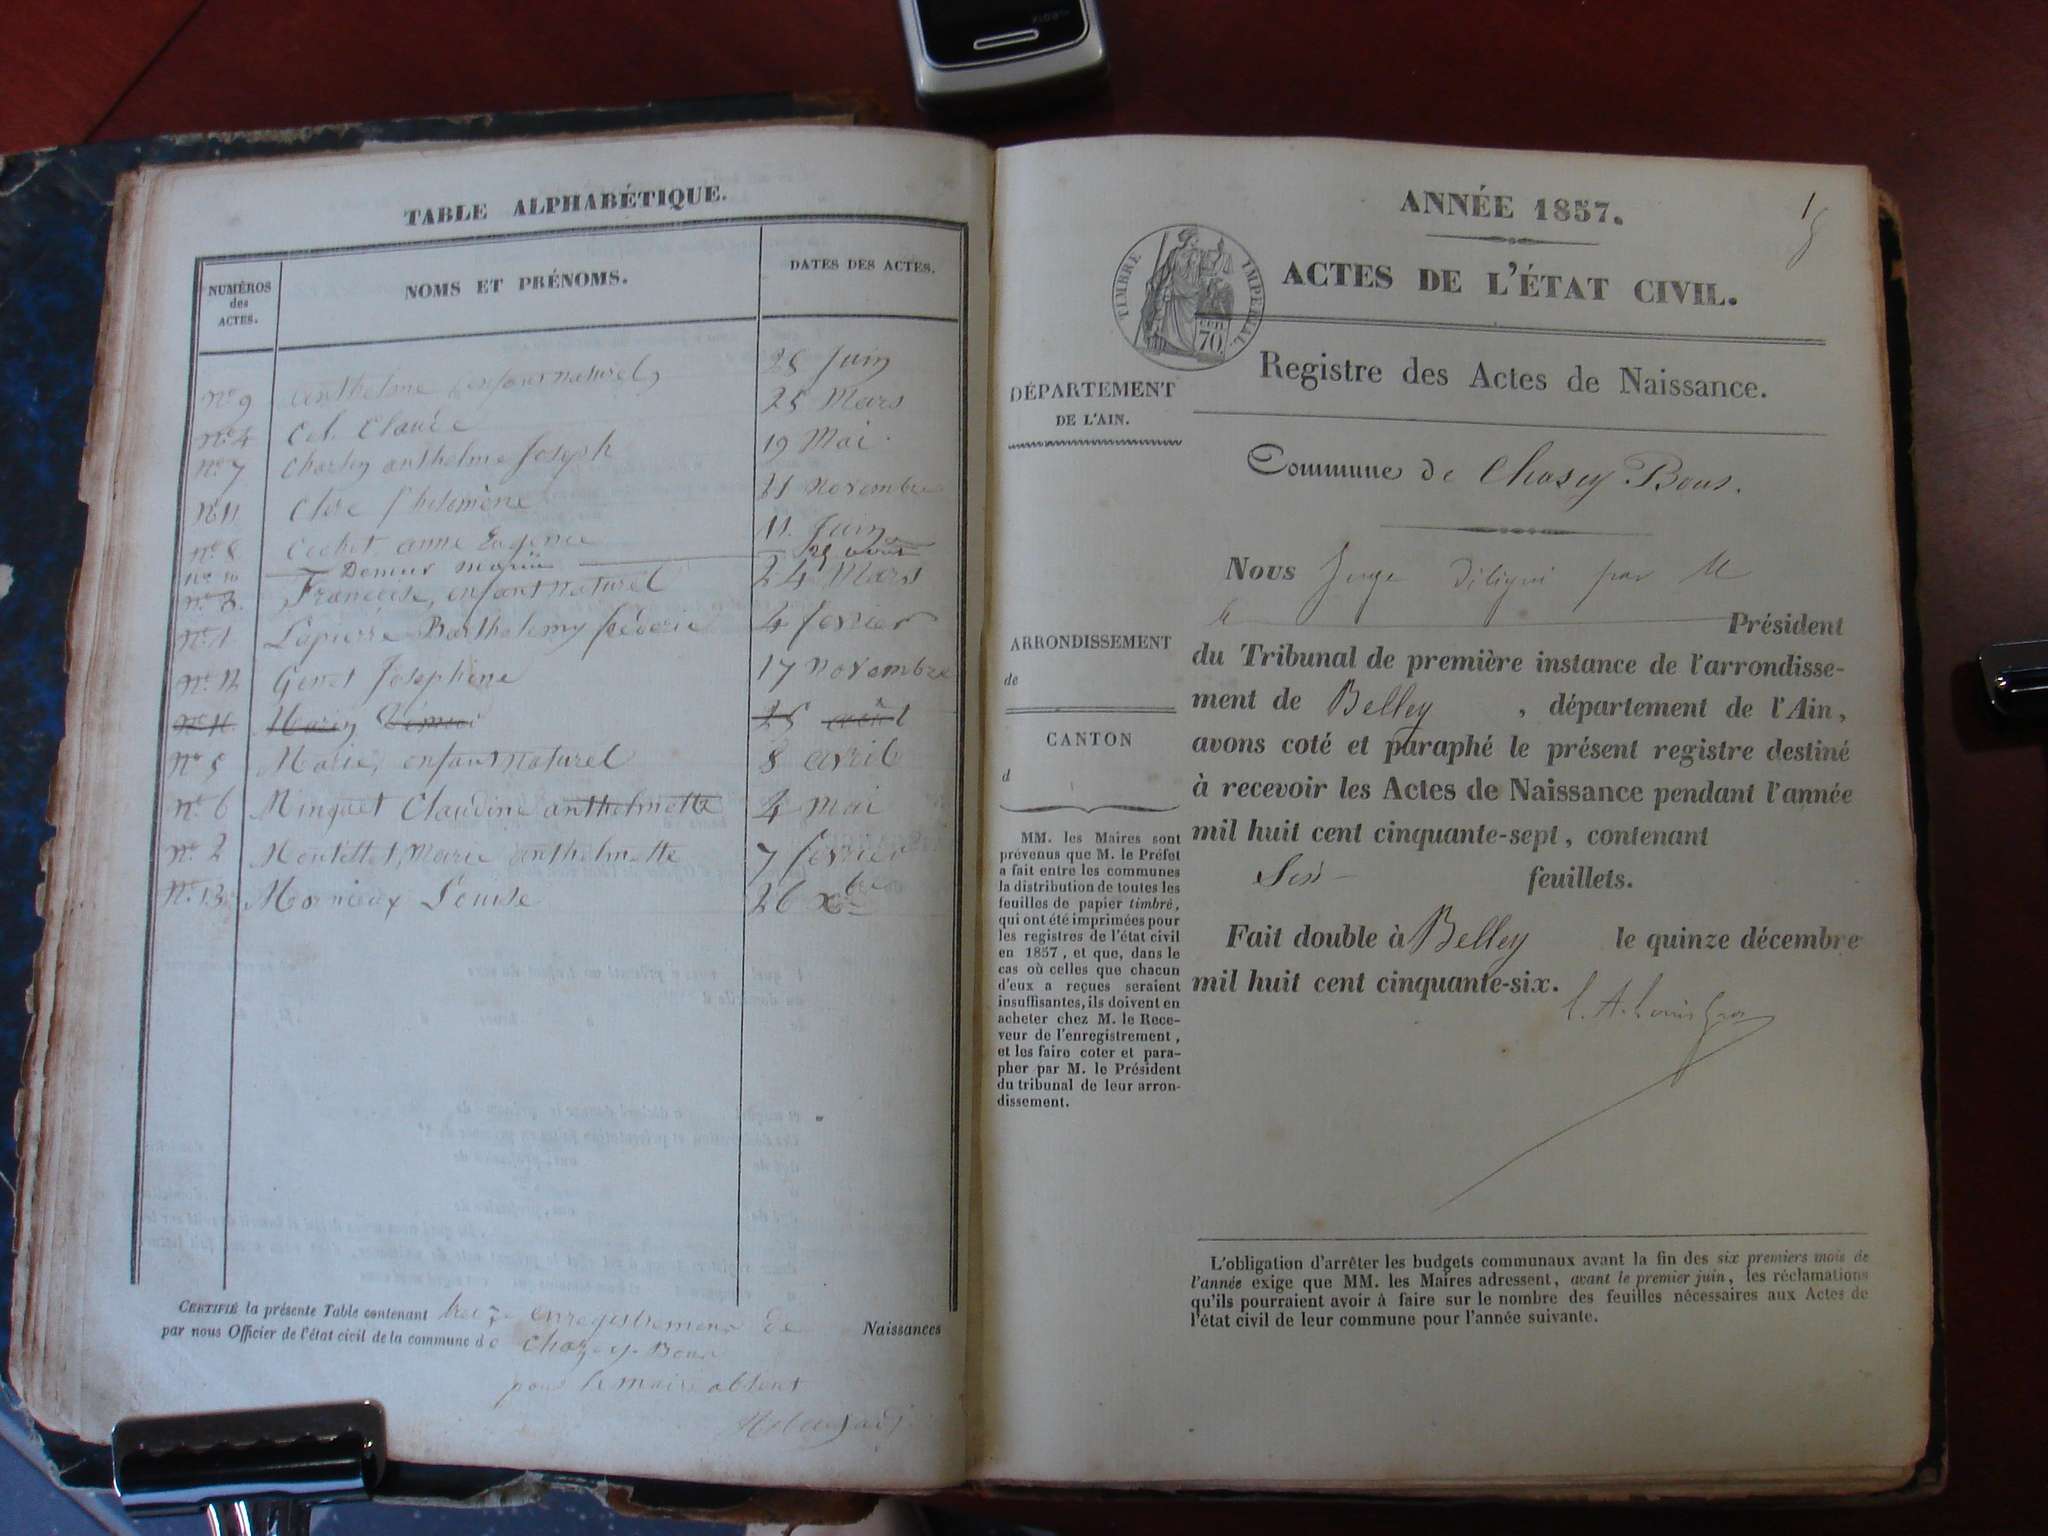 TABLE ALPHABÉTIQUE.
NUMÉROS des ACTES.
NOMS ET PRÉNOMS.
DATES DES ACTES.
No 9 anthelme, enfant naturel, 25 Juin
No 4 Claude 25 Mars
No 7 Charley anthelme Joseph 19 Mai
No 11 Philomène 11 novembre
No 8 Cochet, anne Eugenie 11 Juin
No 10 Demeur
No 3. Francoise, enfant naturel 24 Mars
No 1 Lapierre Barthelemy 4 fevrier
No 12 Genet Josephine 17 novembre
25 août
No 5 Marie, enfant naturel 8 avril
No 6 Minguet Claudine anthelmette 4 mai
No 2 Montettet, Marie anthelmette 7 fevrier
No 13 Mornieux Louise 26 xbre
CERTIFIÉ la présente Table contenant treize enregistremens de Naissances
par nous Officier de l'état civil de la commune de Chazey-Bons
pour le maire absent
ANNÉE 1857.
1
ACTES DE L'ÉTAT CIVIL.
TIMBRE IMPERIAL
CEN
70.
Registre des Actes de Naissance.
DÉPARTEMENT
DE L'AIN.
Commune de Chasey Bons.
Nous Juge délégué par M
le Président
ARRONDISSEMENT
de
CANTON
d
du Tribunal de première instance de l'arrondisse-
ment de Belley, département de l'Ain,
avons coté et paraphé le présent registre destiné
à recevoir les Actes de Naissance pendant l'année
mil huit cent cinquante-sept, contenant
Six feuillets.
Fait double à Belley le quinze décembre
mil huit cent cinquante-six.
MM. les Maires sont
prévenus que M. le Préfet
a fait entre les communes
la distribution de toutes les
feuilles de papier timbré,
qui ont été imprimées pour
les registres de l'état civil
en 1857, et que, dans le
cas où celles que chacun
d'eux a reçues seraient
insuffisantes, ils doivent en
acheter chez M. le Rece-
veur de l'enregistrement,
et les faire coter et para-
pher par M. le Président
du tribunal de leur arron-
dissement.
L'obligation d'arrêter les budgets communaux avant la fin des six premiers mois de
l'année exige que MM. les Maires adressent, avant le premier juin, les réclamations
qu'ils pourraient avoir à faire sur le nombre des feuilles nécessaires aux Actes de
l'état civil de leur commune pour l'année suivante.